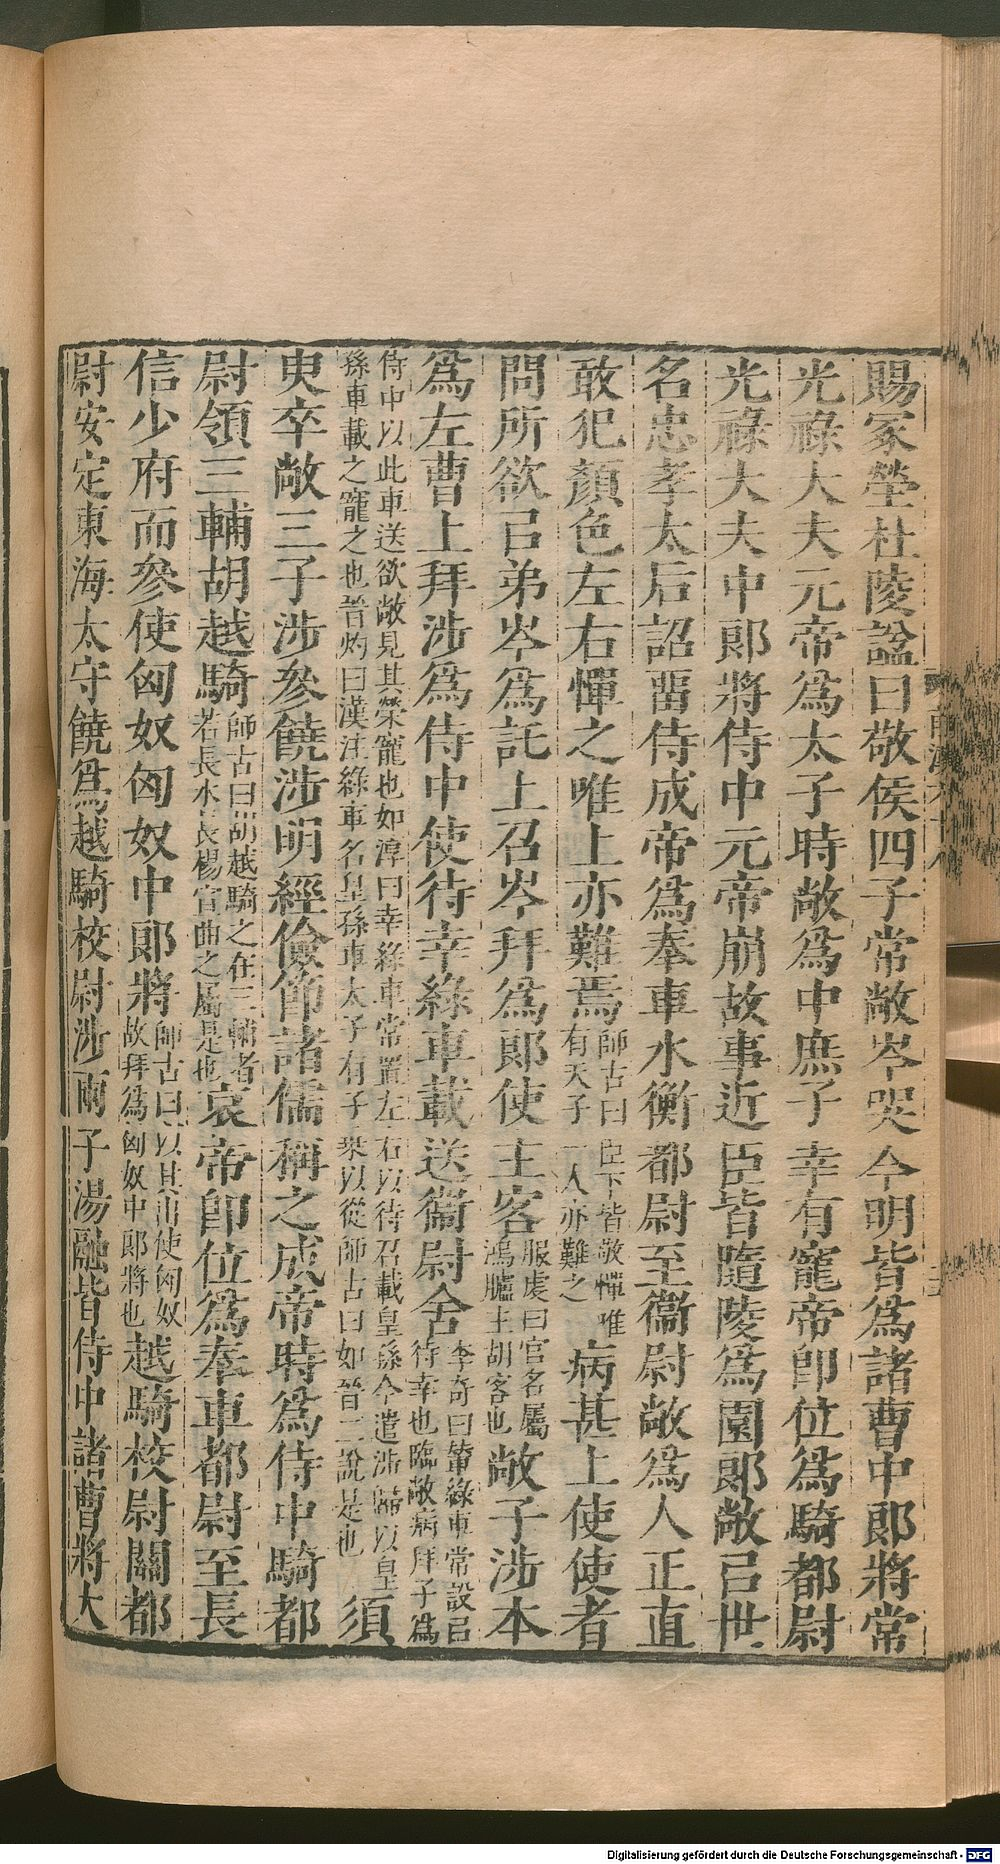 賜冢塋杜陵諡曰敬侯四子常敞岑哭今明皆爲諸曹中郎將常
光祿大夫元帝爲太子時敞爲中庶子幸有寵帝卽位爲騎都尉
光祿大夫中郎將侍中元帝崩故事近臣皆隨陵爲園郎敞㠯世
名忠孝太后詔畱侍成帝爲奉車水衡都尉至衞尉敞爲人正直
敢犯顏色左右憚之唯上亦難焉師古曰臣下皆敬憚唯有天子一人亦難之病甚上使使者
問所欲㠯弟岑爲託上召岑拜爲郎使主客服虔曰官名屬鴻臚主胡客也敞子涉本
爲左曹上拜涉爲侍中使待幸綠車載送衞尉舍李奇曰輦綠車常設㠯待幸也臨敞病拜子爲
侍中以此車送欲敞見其榮寵也如淳曰幸綠車常置左右以待召載皇孫今遣涉歸以皇孫車載之寵之也晉灼曰漢注綠車名皇孫車太子有子乘以從師古曰如晉二說是也須
臾卒敞三子涉參饒涉明經儉節諸儒稱之成帝時爲侍中騎都
尉領三輔胡越騎師古曰胡越騎之在三輔者若長水長楊宣曲之屬是也哀帝卽位爲奉車都尉至長
信少府而參使匈奴匈奴中郎將師古曰以其前使匈奴故拜爲匈奴中郎將也越騎校尉關都
尉安定東海太守饒爲越騎校尉涉兩子湯融皆侍中諸曹將大
Digitalisierung gefördert durch die Deutsche Forschungsgemeinschaft - DFG